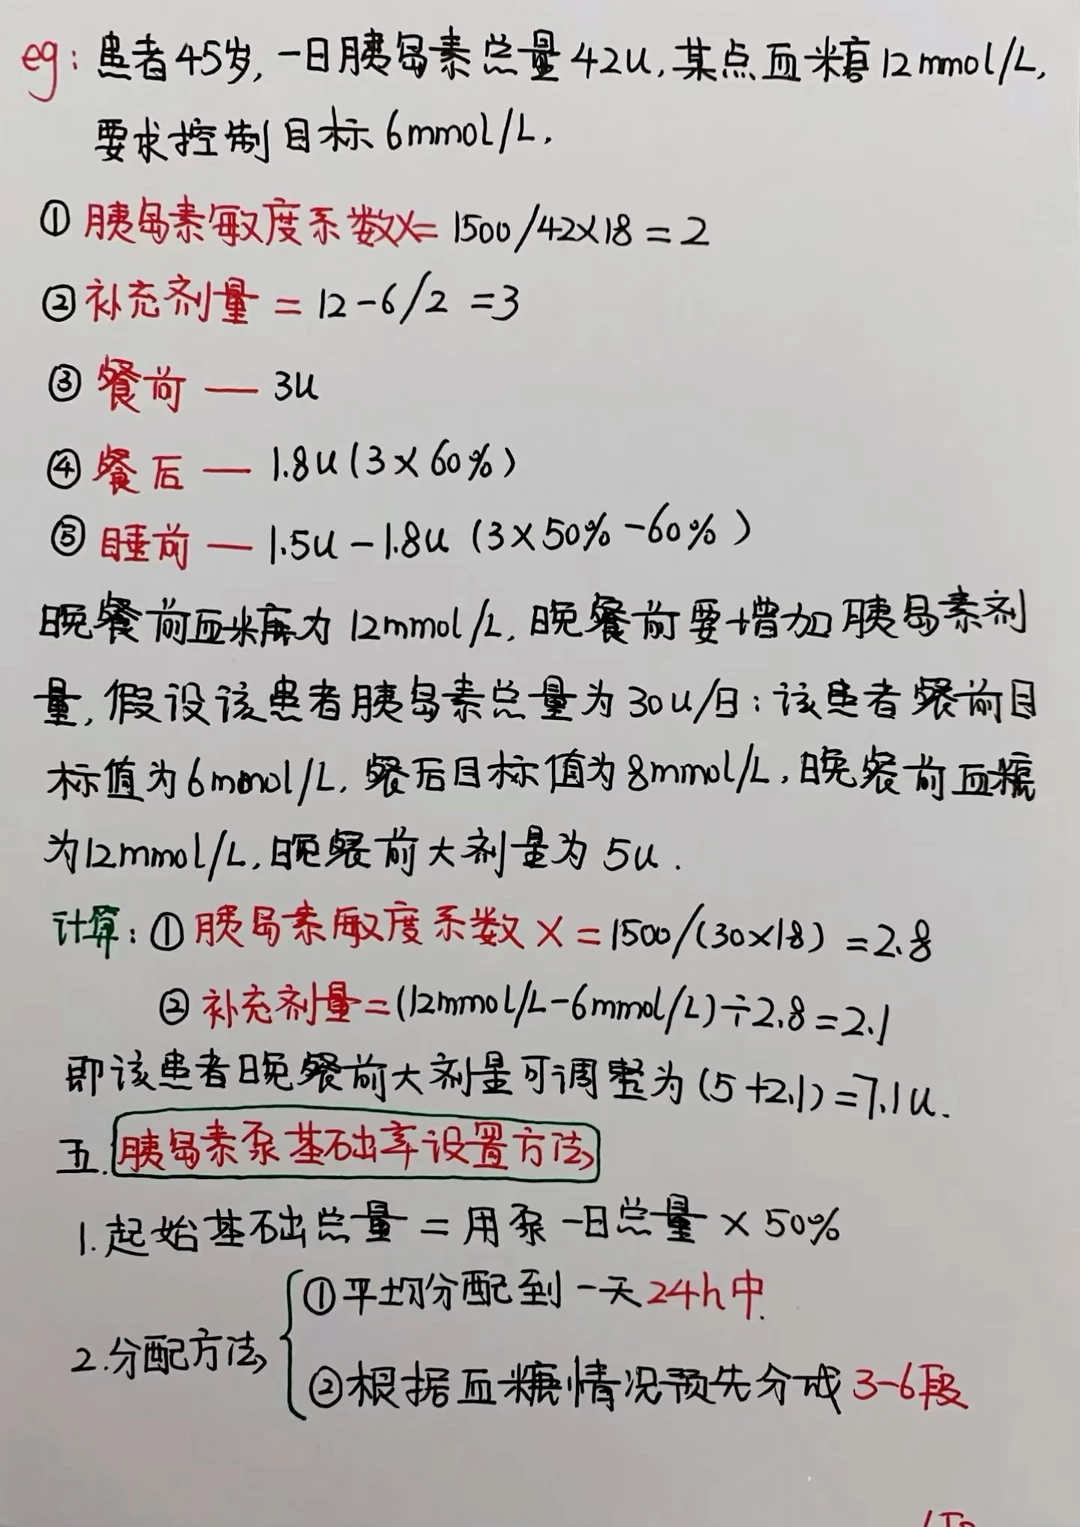 eg: 患者45岁,一日胰岛素总量42U,某点血糖12mmol/L,
要求控制目标6mmol/L.
① 胰岛素敏度系数X=1500/42×18=2
② 补充剂量=12-6/2=3
③ 餐前—3U
④ 餐后—1.8U(3×60%)
⑤ 睡前—1.5U-1.8U(3×50%-60%)
晚餐前血糖为12mmol/L,晚餐前要增加胰岛素剂
量,假设该患者胰岛素总量为30U/日:该患者餐前目
标值为6mmol/L,餐后目标值为8mmol/L,晚餐前血糖
为12mmol/L,晚餐前大剂量为5U.
计算:①胰岛素敏度系数X=1500/(30×18)=2.8
②补充剂量=(12mmol/L-6mmol/L)÷2.8=2.1
即该患者晚餐前大剂量可调整为(5+2.1)=7.1U.
五.胰岛素泵基础率设置方法
1.起始基础总量=用泵一日总量×50%
①平均分配到一天24h中.
2.分配方法
②根据血糖情况预先分成3-6段